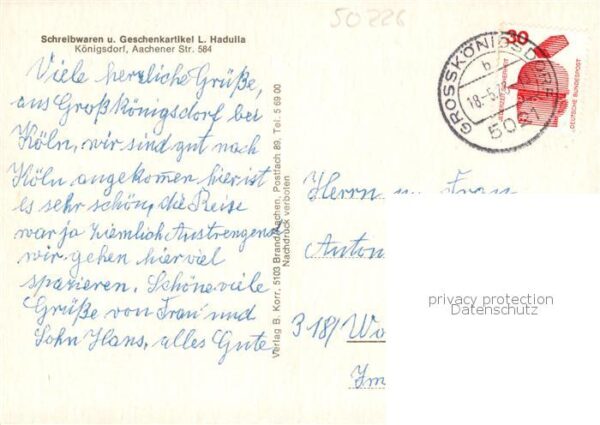 50226
Schreibwaren u. Geschenkartikel L. Hadulla
Königsdorf, Aachener Str. 584
Viele herzliche Grüße,
aus Großkönigsdorf bei
Köln, wir sind gut nach
Köln angekommen hier ist
es sehr schön, die Reise
war ja ziemlich Anstrengend
wir gehen hier viel
spazieren. Schöne viele
Grüße von Frau und
Sohn Hans, alles Gute
Verlag B. Korr, 5103 Brand/Aachen, Postfach 89, Tel. 5 69 00
Nachdruck verboten
GROSSKÖNIGSDORF
b
18.-5.
30
DEUTSCHE BUNDESPOST
Herrn u. Frau
Anton
318/ Wo
Im
privacy protection
Datenschutz